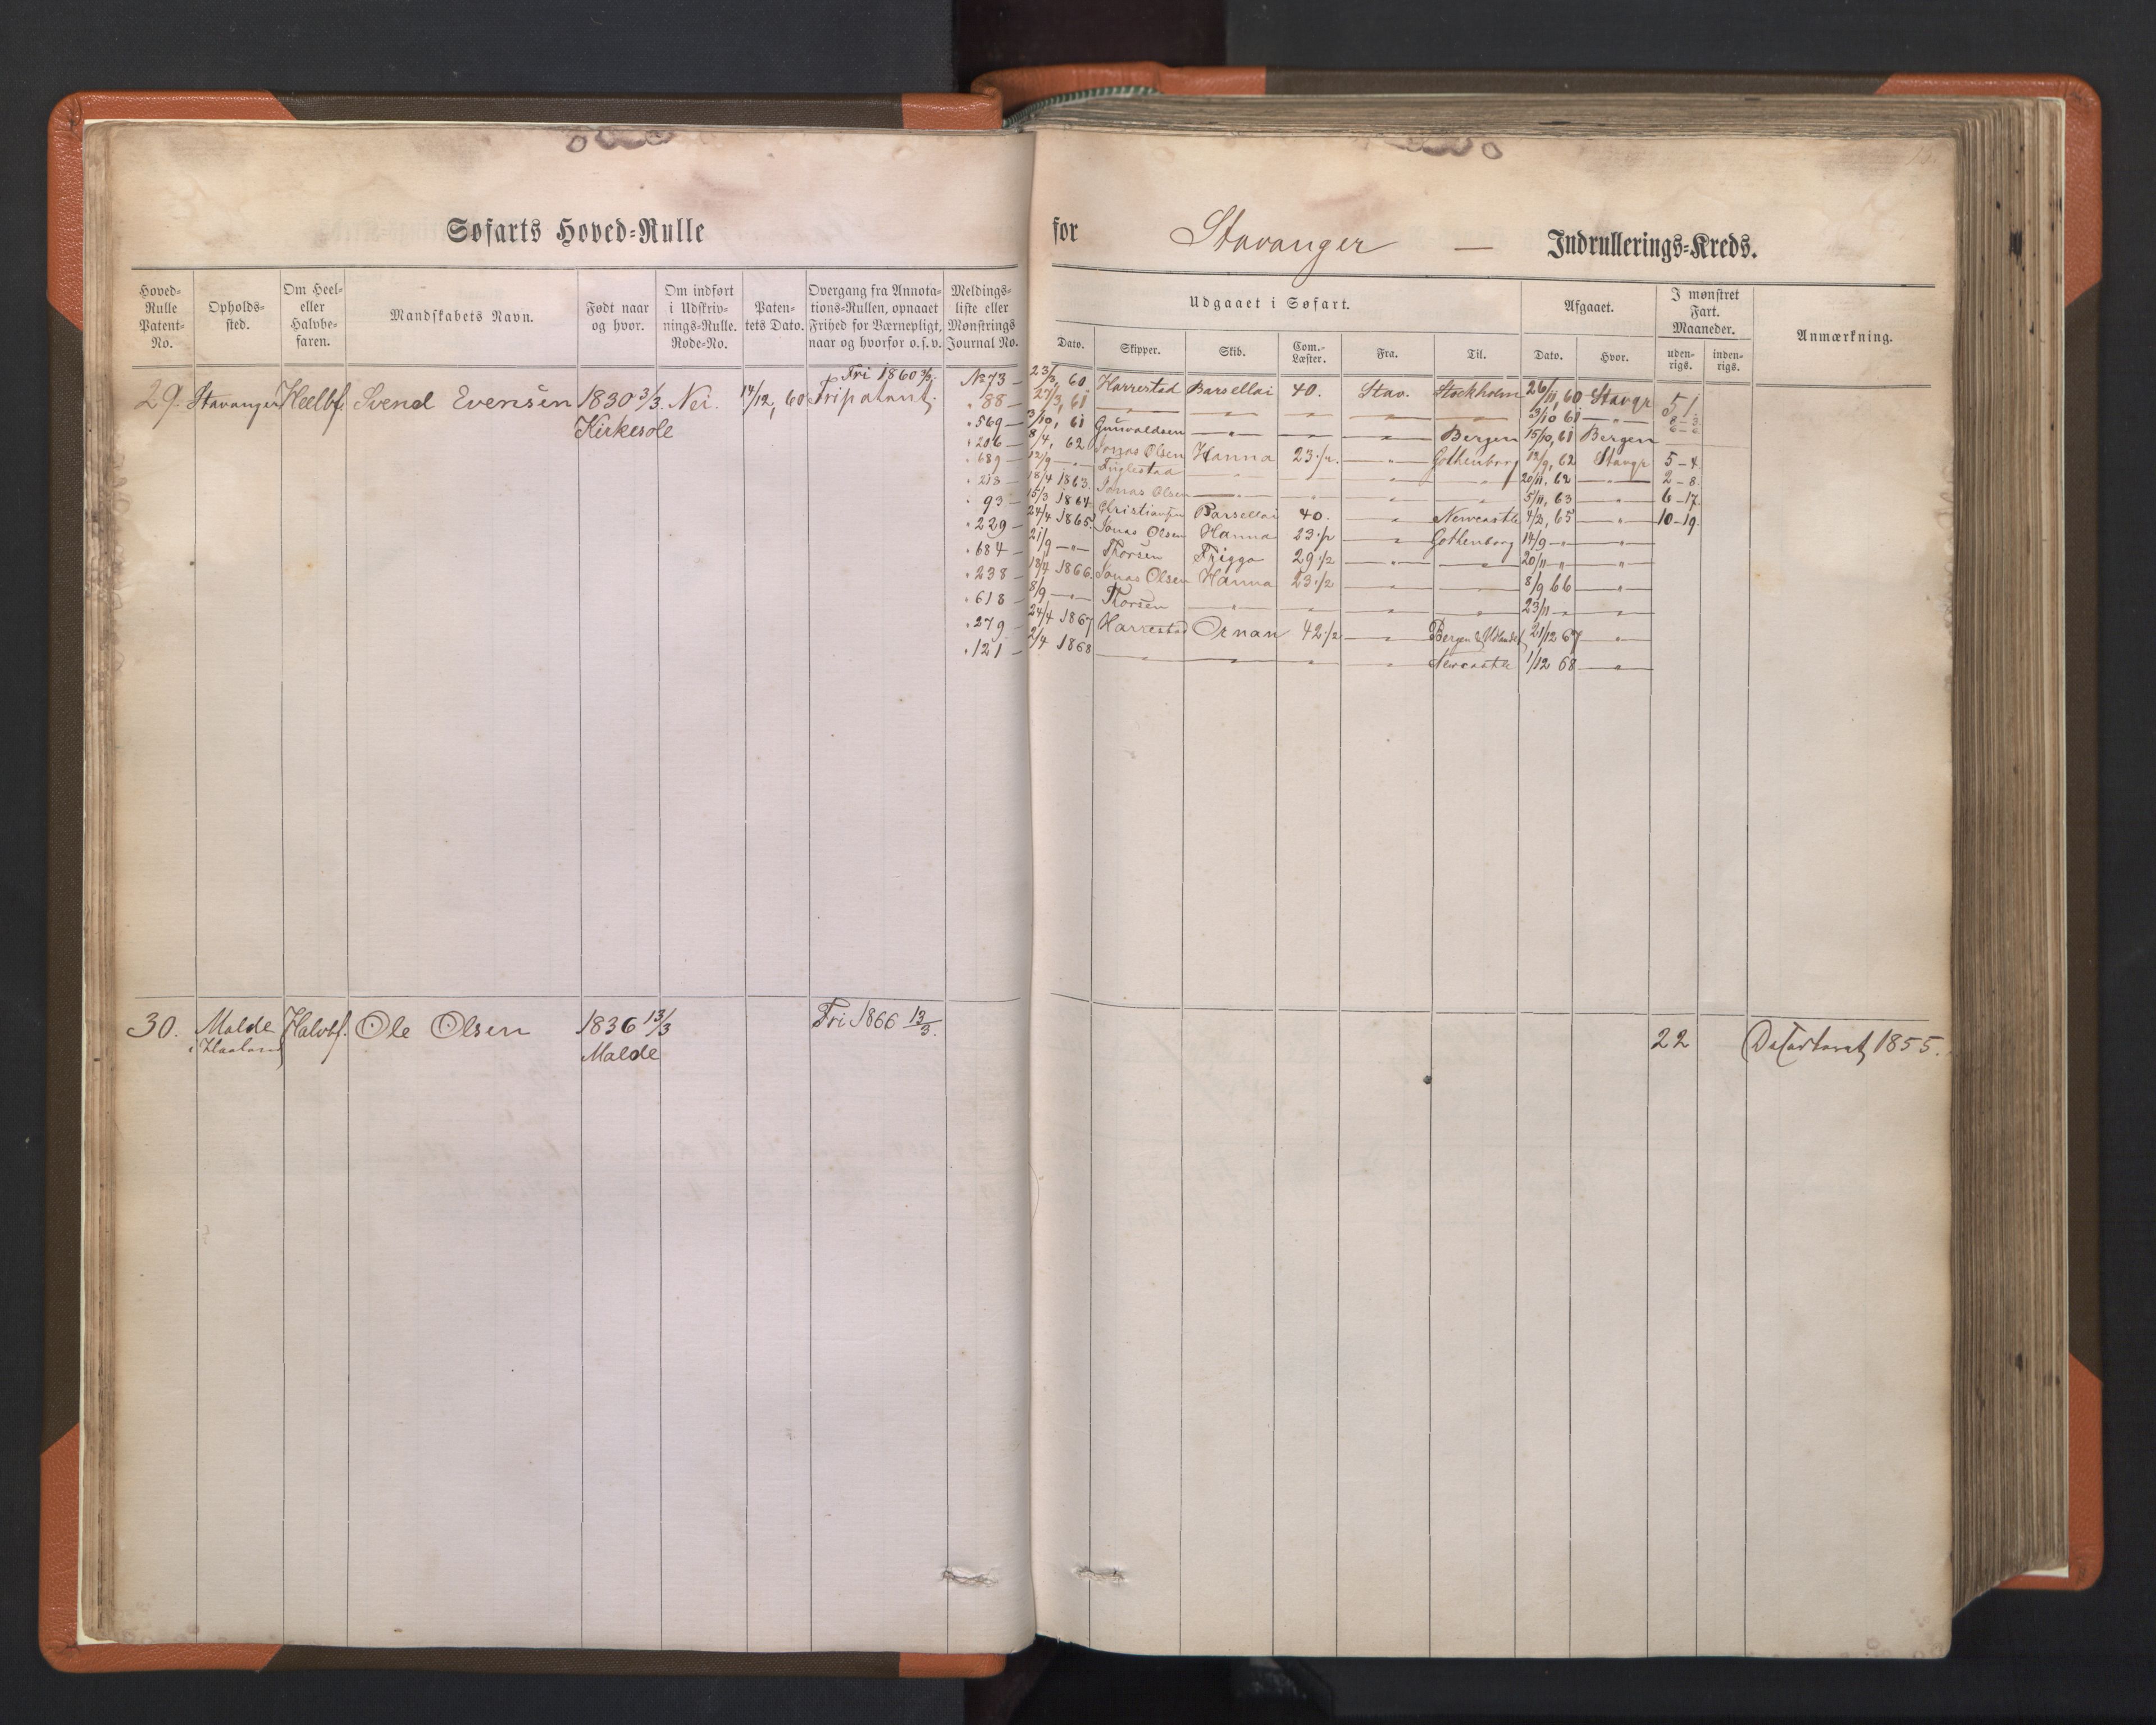 Søfarts Hoved-Rulle for Stavanger — Indrullerings-Kreds.
Hoved-Rulle Patent-No.
Opholds-sted.
Om Heel- eller Halvbe-faren.
Mandskabets Navn.
Født naar og hvor.
Om indført i Udskriv-nings-Rulle. Rode-No.
Paten-tets Dato.
Overgang fra Annota-tions-Rullen, opnaaet Frihed for Værnepligt, naar og hvorfor o.s.v.
Meldings-liste eller Mønstrings Journal No.
Udgaaet i Søfart.
Dato. Skipper. Skib. Com.-Læster. Fra. Til.
Afgaaet.
Dato. Hvor.
I mønstret Fart. Maaneder.
uden-rigs. inden-rigs.
Anmærkning.
29. Stavanger Heelbf. Svend Evensen 1830 3/3. Nei. 14/12, 60 Fri 1860 Fripatent.
Kirkesole
No 73 — 23/3, 60. Harrestad Barsellai 40. Stav. Stockholm 26/11, 60 Stavgr 51.
" 88 — 27/3, 61 — — — — — 23/10 61 — " —
" 569 — 3/10, 61 Gunvaldsen — " — — — Bergen 15/10, 61 Bergen
" 206 — 8/4, 62 Jonas Olsen Hanna 23 1/2. — " — Gothenborg 12/9, 62 Stavgr 5 - 4.
" 689 — 12/9 — " — Fuglestad — — — — 20/11, 62 — " — 2 - 8.
" 213 — 18/4 1863. Jonas Olsen — " — " — " — " 5/11, 63 — " — 6 - 17.
" 93 — 15/3 1864. Christiansen Barsellai 40. — " — Newcastle 4/2, 65 — " — 10 - 19.
" 229 — 24/4 1865. Jonas Olsen Hanna 23 1/2 — " — Gothenborg 14/9 — " — "
" 684 — 21/9 — " — Thorsen Frigga 29 1/2 — " — — " — 20/11 — " — "
" 238 — 18/4 1866. Jonas Olsen Hanna 23 1/2 — " — — " — 8/9 66 — " —
" 618 — 8/9 — " — Thorsen — " — — " — — " — — " — 23/11 — " — "
" 279 — 24/4 1867 Harrestad Ornan 42 1/2 — " — Bergen & Udlandet 21/12 67 — "
" 121 — 2/4 1868 — " — — " — — " — — " — Newcastle 1/12 68 — " —
30. Malde Halvbf. Ole Olsen 1836 13/3 Fri 1866 13/3. 22 1855.
i Haaland Malde